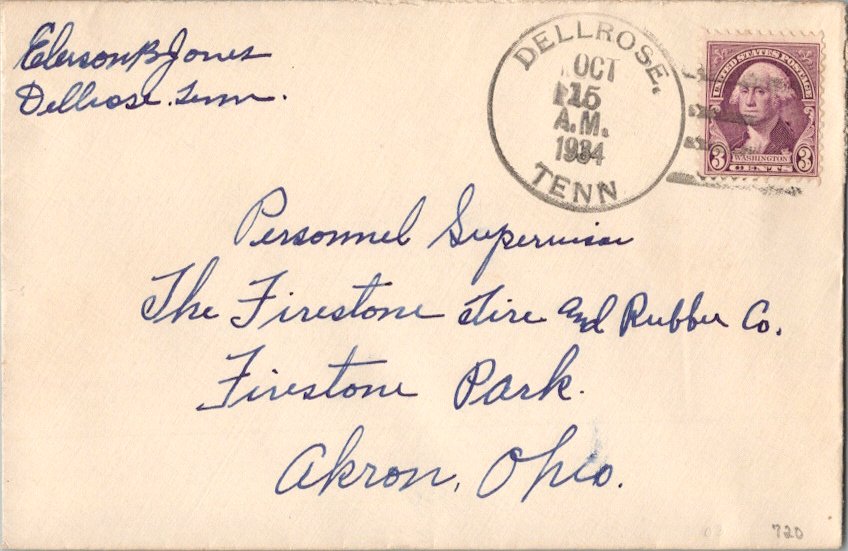 Elerson B Jones
Dellrose. Tenn.
DELLROSE.
OCT
15
A.M.
1934
TENN
UNITED STATES POSTAGE
3 WASHINGTON 3
CENTS
Personnel Supervisor
The Firestone Tire and Rubber Co.
Firestone Park.
Akron, Ohio.
720